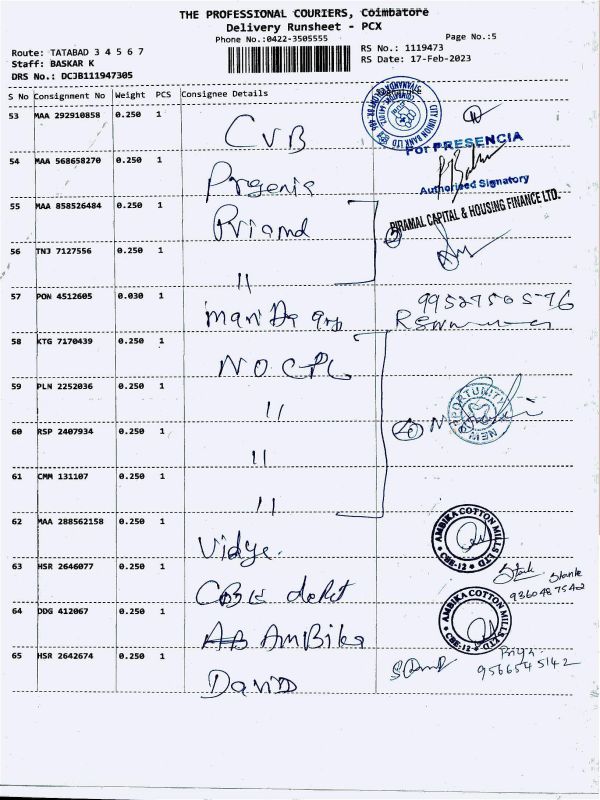 THE PROFESSIONAL COURIERS, Coimbatore
Delivery Runsheet - PCX
Phone No.:0422-3505555
Page No.:5
Route: TATABAD 3 4 5 6 7
RS No.: 1119473
Staff: BASKAR K
RS Date: 17-Feb-2023
DRS No.: DCJB111947305
S No Consignment No Weight PCS Consignee Details
53 MAA 292910858 0.250 1 CUB
CITY UNION BANK LTD
54 MAA 568658270 0.250 1
For PRESENCIA
Authorised Signatory
55 MAA 858526484 0.250 1
PIRAMAL CAPITAL & HOUSING FINANCE LTD.
56 TNJ 7127556 0.250 1 "
57 PON 4512605 0.030 1
9952750576
58 KTG 7170439 0.250 1 N.O.CPL
59 PLN 2252036 0.250 1 "
NEW OPPORTUNITY
60 RSP 2407934 0.250 1 "
61 CMM 131107 0.250 1 "
62 MAA 288562158 0.250 1 Vidye.
AMBIKA COTTON MILLS LTD
CBE-12
63 HSR 2646077 0.250 1
9360487542
64 DDG 412067 0.250 1 AmBika
AMBIKA COTTON MILLS LTD
CBE-12
Priya
65 HSR 2642674 0.250 1 David
9566545142